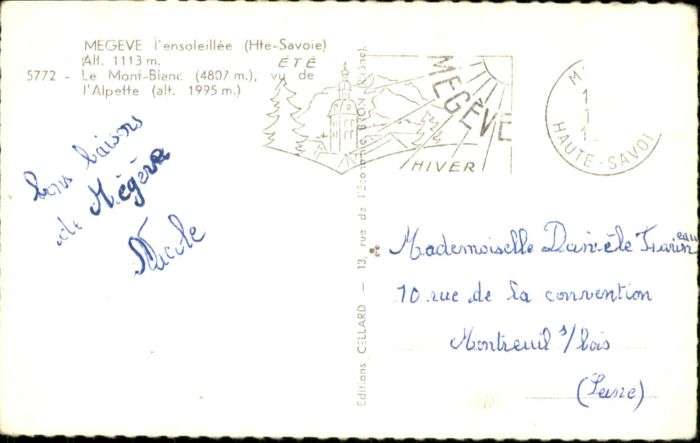 MEGEVE l'ensoleillée (Hte-Savoie)
Alt. 1113 m.
5772 - Le Mont-Blanc (4807 m.), vu de
l'Alpette (alt. 1995 m.)
ÉTÉ
MEGÈVE
HIVER
HAUTE-SAVOI
bons baisers
de Mégève
Nicole
Editions CELLARD — 13, rue de l'Economie, BRON (Rhône)
Mademoiselle Danièle
10 rue de la convention
Montreuil s/bois
(Seine)